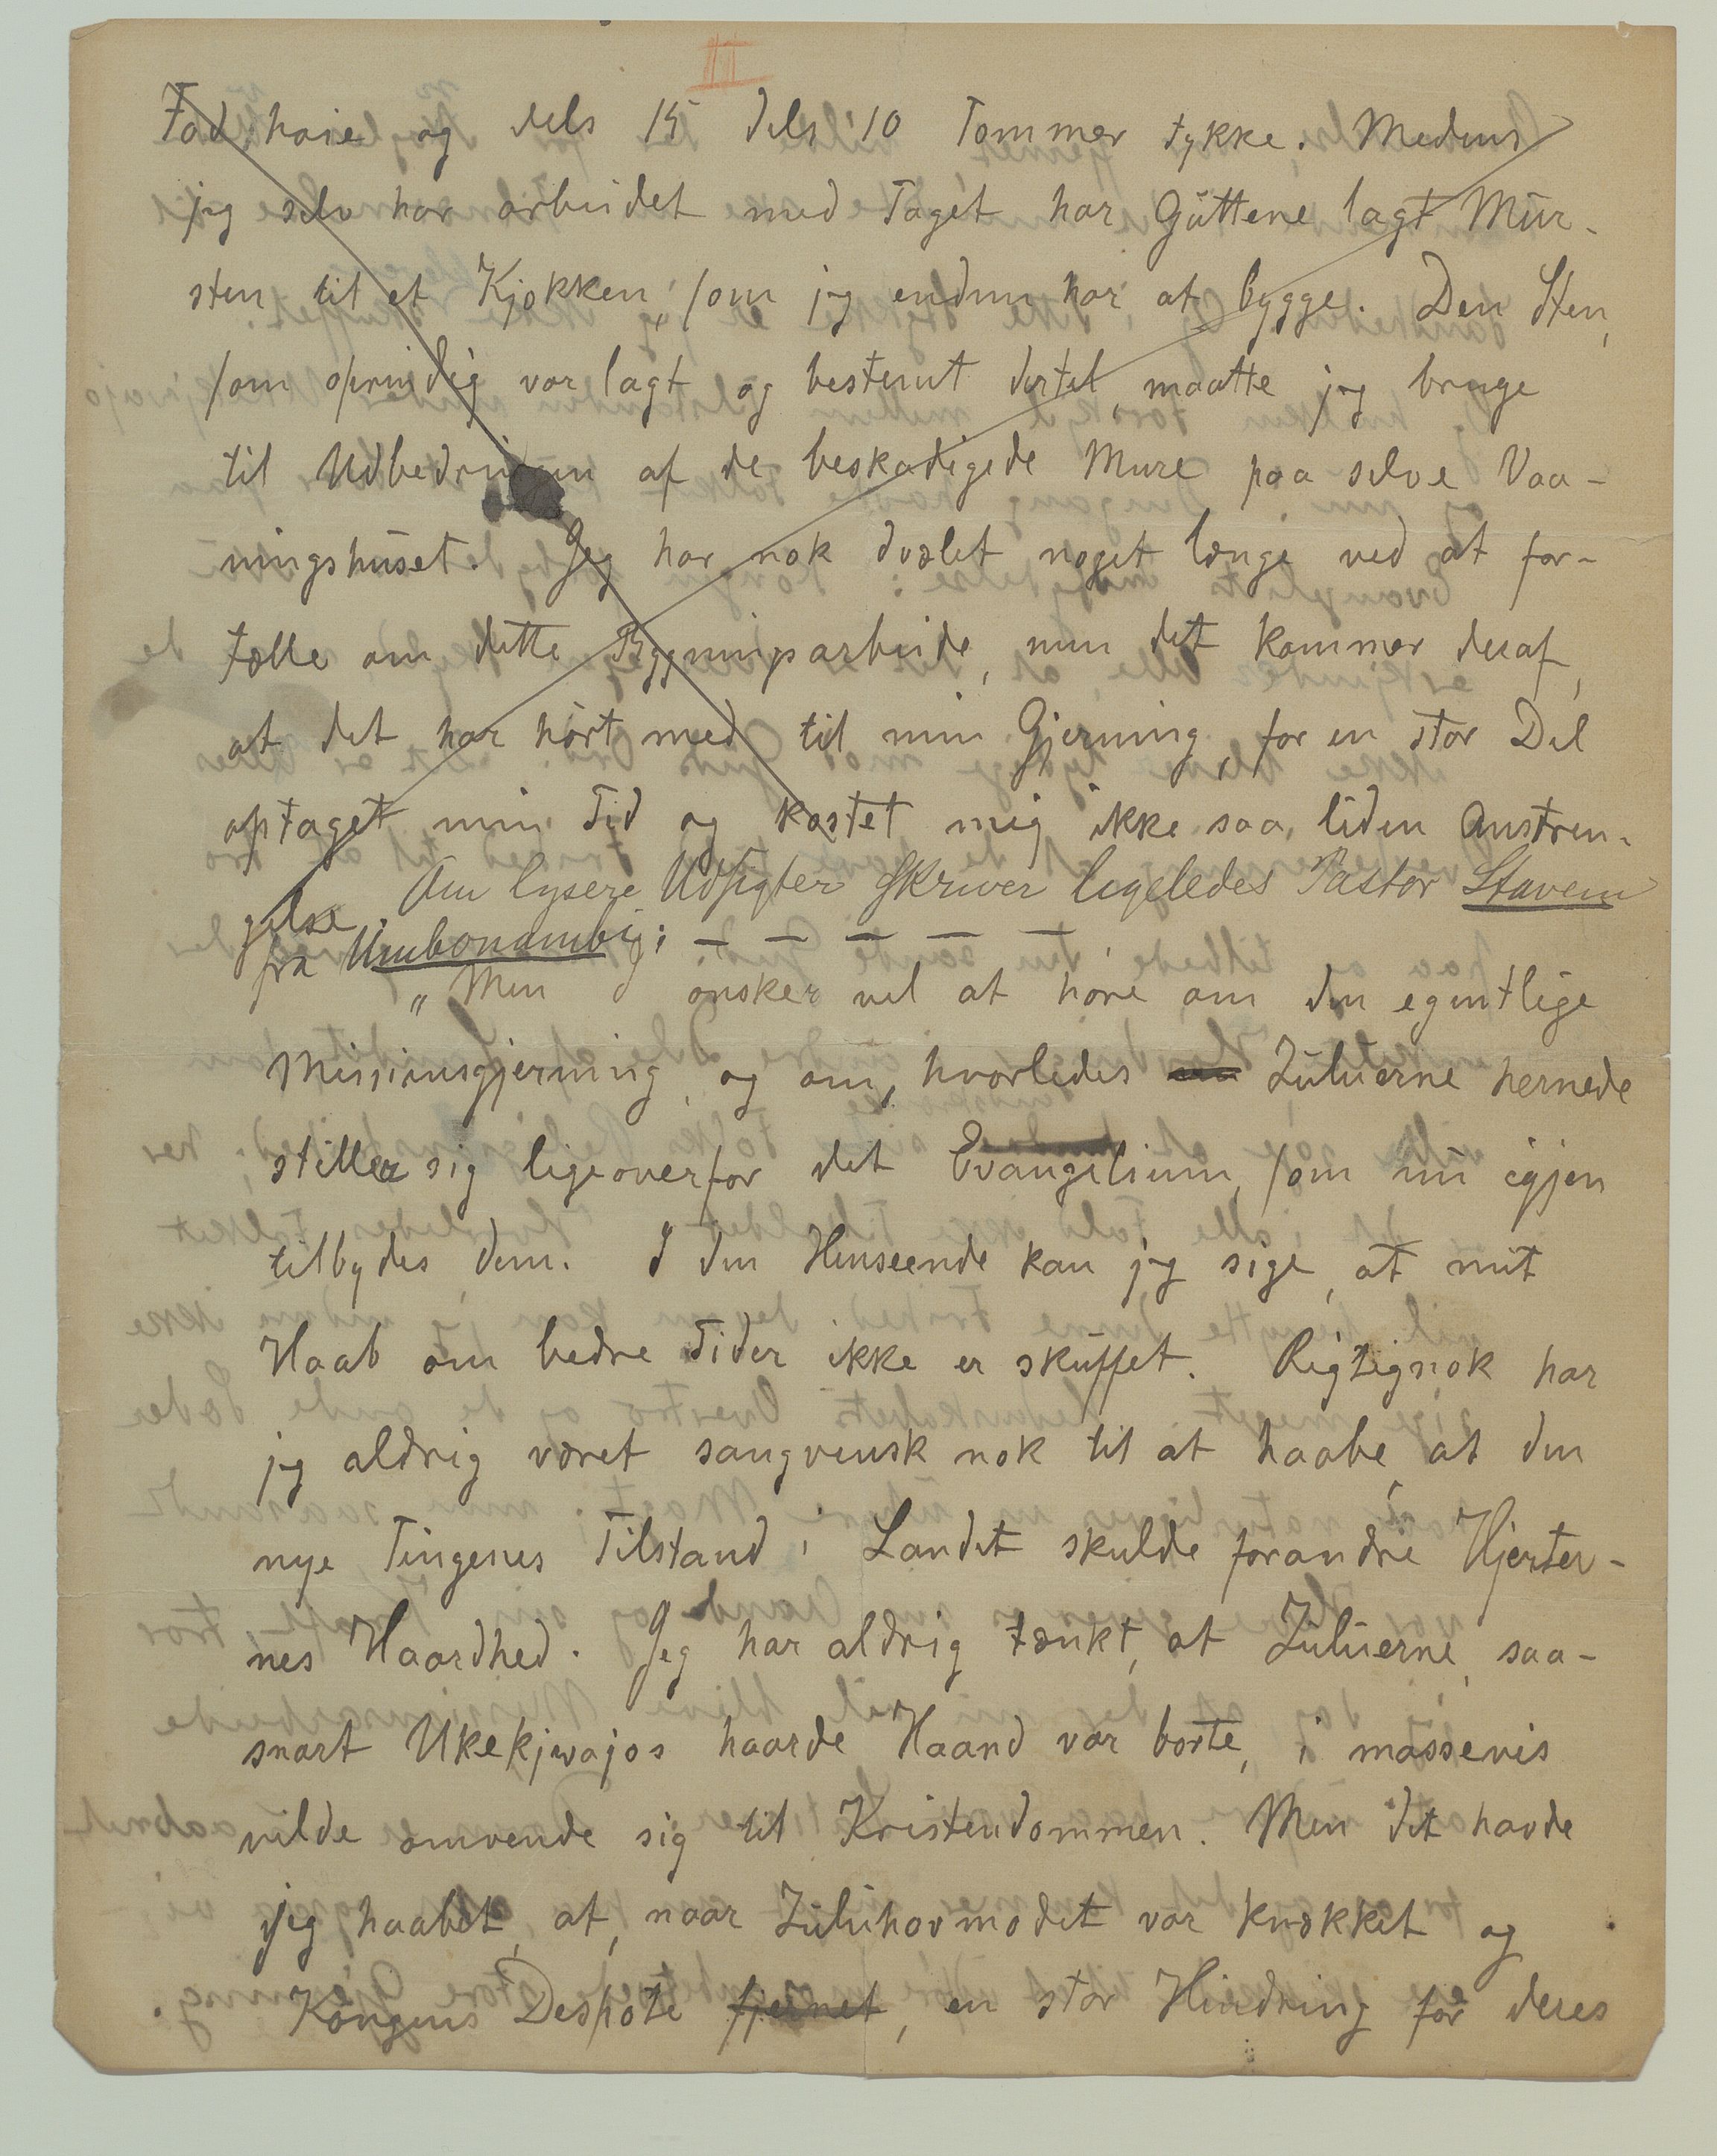 II
Fod høie og dels 15 dels 10 Tommer tykke. Medens
jeg selv har arbeidet med Taget har Gutterne lagt Mur-
sten til et Kjøkken, som jeg endnu har at bygge. Den Sten,
som oprindig var lagt og bestemt dertil, maatte jeg bruge
til Udbedringen af de beskadigede Mure paa selve Vaa-
ningshuset. Jeg har nok dvælet noget længe ved at for-
tælle om dette Bygningsarbeide, men det kommer deraf,
at det har hørt med til min Gjerning, for en stor Del
optaget min Tid og kostet mig ikke saa liden Anstren-
gelse.
Om lysere Udsigter skriver ligeledes Pastor Stavem
fra Umbonambi: — — — — —
"Men I ønsker vel at høre om den egentlige
Missionsgjerning og om, hvorledes Zuluerne hernede
stiller sig ligeoverfor det Evangelium, som nu igjen
tilbydes dem. I den Henseende kan jeg sige, at mit
Haab om bedre Tider ikke er skuffet. Rigtignok har
jeg aldrig været sangvinsk nok til at haabe, at den
nye Tingenes Tilstand i Landet skulde forandre Hjerter-
nes Haardhed. Jeg har aldrig tænkt, at Zuluerne, saa-
snart Ukekjwajos haarde Haand var borte, i massevis
vilde omvende sig til Kristendommen. Men det havde
jeg haabet, at, naar Zuluhovmodet var knækket og
Kongens Despoti fjernet, en stor Hindring for deres